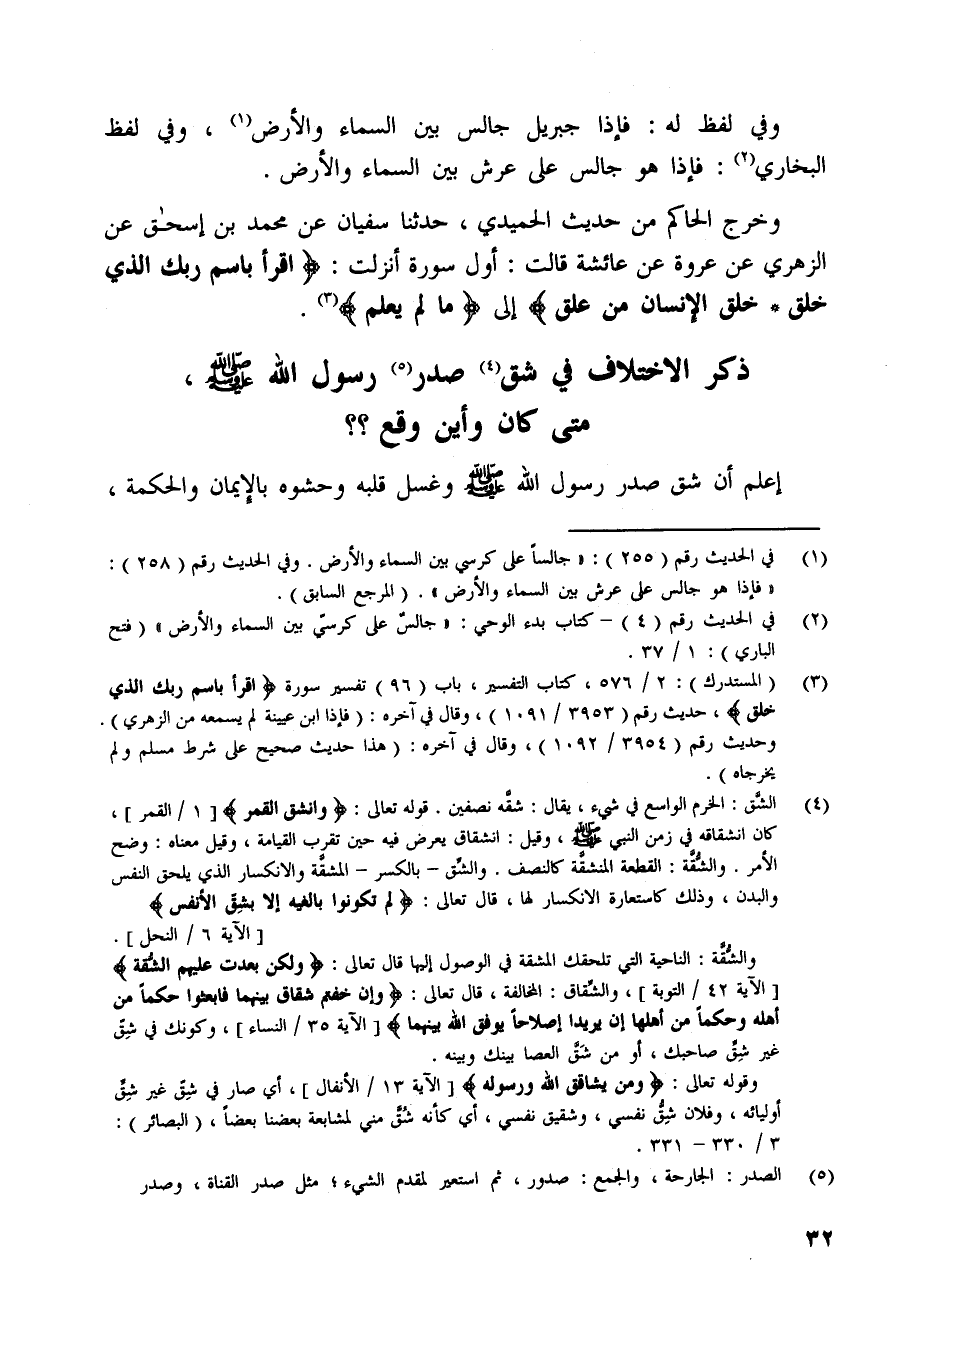 وفي لفظ له : فإذا جبريل جالس بين السماء والأرض(١) ، وفي لفظ
البخاري(٢) : فإذا هو جالس على عرش بين السماء والأرض .
وخرج الحاكم من حديث الحميدي ، حدثنا سفيان عن محمد بن إسحٰق عن
الزهري عن عروة عن عائشة قالت : أول سورة أنزلت : ﴿ اقرأ باسم ربك الذي
خلق * خلق الإنسان من علق ﴾ إلى ﴿ ما لم يعلم ﴾(٣) .
ذكر الاختلاف في شق(٤) صدر(٥) رسول الله ﷺ ،
متى كان وأين وقع ؟؟
إعلم أن شق صدر رسول الله ﷺ وغسل قلبه وحشوه بالإيمان والحكمة ،
(١) في الحديث رقم ( ٢٥٥ ) : « جالساً على كرسي بين السماء والأرض . وفي الحديث رقم ( ٢٥٨ ) :
« فإذا هو جالس على عرش بين السماء والأرض » . ( المرجع السابق ) .
(٢) في الحديث رقم ( ٤ ) – كتاب بدء الوحي : « جالسٌ على كرسيّ بين السماء والأرض » ( فتح
الباري ) : ١ / ٣٧ .
(٣) ( المستدرك ) : ٢ / ٥٧٦ ، كتاب التفسير ، باب ( ٩٦ ) تفسير سورة ﴿ اقرأ باسم ربك الذي
خلق ﴾ ، حديث رقم ( ٣٩٥٣ / ١٠٩١ ) ، وقال في آخره : ( فإذا ابن عيينة لم يسمعه من الزهري ) .
وحديث رقم ( ٣٩٥٤ / ١٠٩٢ ) ، وقال في آخره : ( هذا حديث صحيح على شرط مسلم ولم
يخرجاه ) .
(٤) الشَّق : الخرم الواسع في شيء ، يقال : شقَّه نصفين . قوله تعالى : ﴿ وانشق القمر ﴾ [ ١ / القمر ] ،
كان انشقاقه في زمن النبي ﷺ ، وقيل : انشقاق يعرض فيه حين تقرب القيامة ، وقيل معناه : وضح
الأمر . والشُّقَّة : القطعة المنشقَّة كالنصف . والشِّق – بالكسر – المشقَّة والانكسار الذي يلحق النفس
والبدن ، وذلك كاستعارة الانكسار لها ، قال تعالى : ﴿ لم تكونوا بالغيه إلا بشِقِّ الأنفس ﴾
[ الآية ٦ / النحل ] .
والشُّقَّة : الناحية التي تلحقك المشقة في الوصول إليها قال تعالى : ﴿ ولكن بعدت عليهم الشُّقة ﴾
[ الآية ٤٢ / التوبة ] ، والشِّقاق : المخالفة ، قال تعالى : ﴿ وإن خفتم شقاق بينهما فابعثوا حكماً من
أهله وحكماً من أهلها إن يريدا إصلاحاً يوفق الله بينهما ﴾ [ الآية ٣٥ / النساء ] ، وكونك في شِقِّ
غير شِقِّ صاحبك ، أو من شَقَّ العصا بينك وبينه .
وقوله تعالى : ﴿ ومن يشاقق الله ورسوله ﴾ [ الآية ١٣ / الأنفال ] ، أي صار في شِقّ غير شِقِّ
أوليائه ، وفلان شِقُّ نفسي ، وشقيق نفسي ، أي كأنه شُقَّ مني لمشابعة بعضنا بعضاً ، ( البصائر ) :
٣ / ٣٣٠ – ٣٣١ .
(٥) الصدر : الجارحة ، والجمع : صدور ، ثم استعير لمقدم الشيء ؛ مثل صدر القناة ، وصدر
٣٢